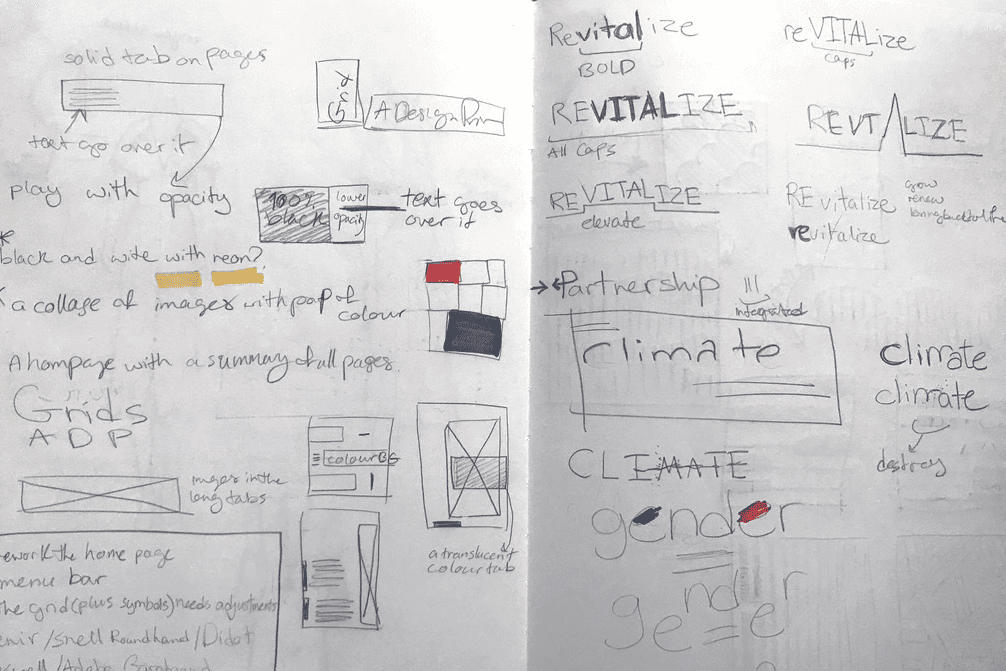 solid tab on pages
text go over it
play with opacity
A Design Prin
100% black
lower opacity
text goes over it
black and wite with neon?
a collage of images with pop of colour
A hompage with a summary of all pages.
Grids
ADP
images in the long tabs
colour BG
a translucent colour tab
ework the home page
menu bar
the grid (plus symbols) needs adjustments
enir / Snell Roundhand / Didot
Revitalize
BOLD
reVITALize
caps
REVITALIZE
All Caps
REVITALIZE
REVITALIZE
elevate
REvitalize
revitalize
grow
renew
bring back to life
Partnership
integrated
Climate
climate
climate
destroy
CLIMATE
gender
gender